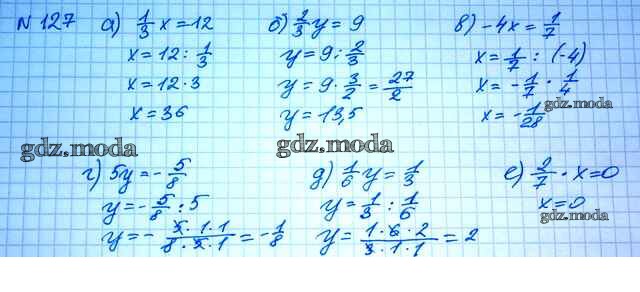 N 127 а) 1/3 x = 12
x = 12 : 1/3
x = 12 · 3
x = 36
б) 2/3 y = 9
y = 9 : 2/3
y = 9 · 3/2 = 27/2
y = 13,5
в) -4x = 1/7
x = 1/7 : (-4)
x = -1/7 · 1/4
x = -1/28
gdz.moda
gdz.moda
gdz.moda
г) 5y = -5/8
y = -5/8 : 5
y = - 5·1·1/8·5·1 = -1/8
д) 1/6 y = 1/3
y = 1/3 : 1/6
y = 1·6·2/3·1·1 = 2
е) 2/7 · x = 0
x = 0
gdz.moda